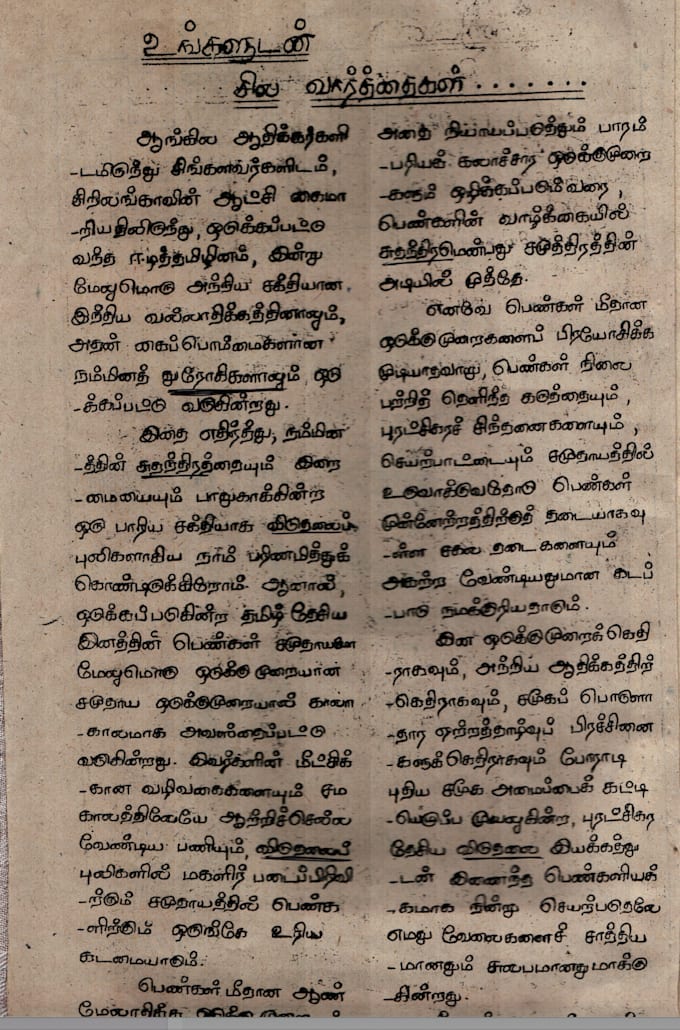 உங்களுடன்
சில வார்த்தைகள் . . . . . . .
ஆங்கில ஆதிக்கர்களி
-டமிருந்து சிங்களவர்களிடம்,
சிறிலங்காவின் ஆட்சி கைமா
-றியதிலிருந்து, ஒடுக்கப்பட்டு
வந்த ஈழத்தமிழினம், இன்று
மேலுமொரு அந்நிய சக்தியான
இந்திய வல்லாதிக்கத்தினாலும்,
அதன் கைப்பொம்மைகளான
நம்மினத் துரோகிகளாலும் ஒடு
-க்கப்பட்டு வருகின்றது.
இதை எதிர்த்து, நம்மின
-த்தின் சுதந்திரத்தையும் இறை
-மையையும் பாதுகாக்கின்ற
ஒரு பாரிய சக்தியாக விடுதலைப்
புலிகளாகிய நாம் பரிணமித்துக்
கொண்டிருக்கிறோம். ஆனால்,
ஒடுக்கப்படுகின்ற தமிழ் தேசிய
இனத்தின் பெண்கள் சமுதாயமோ
மேலுமொரு ஒடுக்குமுறையான
சமுதாய ஒடுக்குமுறையால் காலா
-காலமாக அவஸ்தைப்பட்டு
வருகின்றது. இவர்களின் மீட்சிக்
-கான வழிவகைகளையும் சம
காலத்திலேயே ஆற்றிச்செல்ல
வேண்டிய பணியும், விடுதலைப்
புலிகளில் மகளிர் படைப்பிரிவி
-ற்கும் சமுதாயத்தில் பெண்க
-ளிற்கும் ஒருங்கே உரிய
கடமையாகும்.
பெண்கள் மீதான ஆண்
மேலாதிக்க
அதை நியாயப்படுத்தும் பாரம்
-பரியக் கலாச்சார ஒடுக்குமுறை
-களும் ஒழிக்கப்படும்வரை,
பெண்களின் வாழ்க்கையில்
சுதந்திரமென்பது சமுத்திரத்தின்
அடியில் முத்தே.
எனவே பெண்கள் மீதான
ஒடுக்குமுறைகளைப் பிரயோசிக்க
முடியாதவாறு, பெண்கள் நிலை
பற்றித் தெளிந்த கருத்தையும்,
புரட்சிகரச் சிந்தனைகளையும்,
செயற்பாட்டையும் சமுதாயத்தில்
உருவாக்குவதோடு பெண்கள்
முன்னேற்றத்திற்குத் தடையாகவு
-ள்ள சகல தடைகளையும்
அகற்ற வேண்டியதுமான கடப்
-பாடு நமக்குரியதாகும்.
இன ஒடுக்குமுறைக்கெதி
-ராகவும், அந்நிய ஆதிக்கத்திற்
-கெதிராகவும், சமூகப் பொருளா
-தார ஏற்றத்தாழ்வுப் பிரச்சினை
-களுக்கெதிராகவும் போராடி
புதிய சமூக அமைப்பைக் கட்டி
-யெழுப்ப முயலுகின்ற, புரட்சிகர
தேசிய விடுதலை இயக்கத்து
-டன் இணைந்த பெண்களியக்
-கமாக நின்று செயற்படுதலே
எமது வேலைகளைச் சாத்திய
-மானதும் சுலபமானதுமாக்கு
-கின்றது.